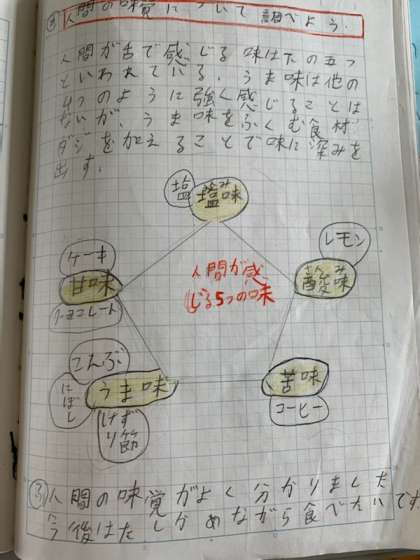 人間の味覚について調べよう.
人間が舌で感じる味は下の五つ
といわれている。うま味は他の
4つのように強く感じることは
ないが、うま味をふくむ食材
ダシを加えることで味に深みを
出す.
塩
塩味
レモン
酸味
ケーキ
甘味
チョコレート
人間が感
じる5つの味
こんぶ
うま味
にぼし
けずり節
苦味
コーヒー
人間の味覚がよく分かりました
今後はたしかめながら食べたいです